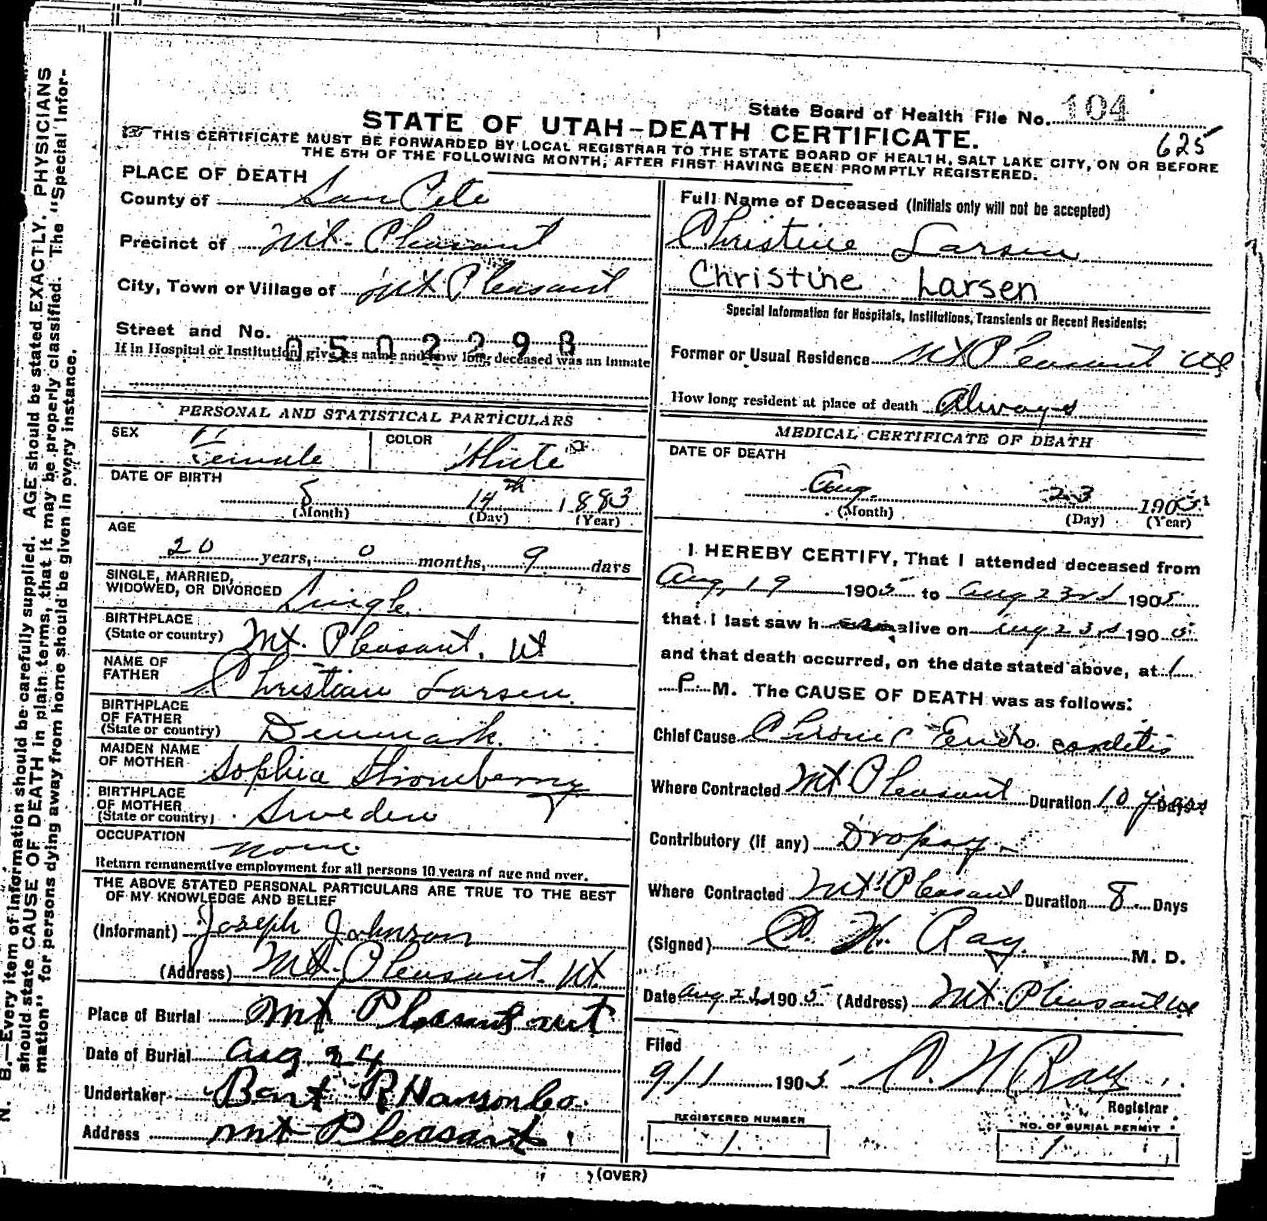 State Board of Health File No. 104
625
STATE OF UTAH-DEATH CERTIFICATE.
THIS CERTIFICATE MUST BE FORWARDED BY LOCAL REGISTRAR TO THE STATE BOARD OF HEALTH, SALT LAKE CITY, ON OR BEFORE
THE 5TH OF THE FOLLOWING MONTH, AFTER FIRST HAVING BEEN PROMPTLY REGISTERED.
N. B.—Every item of information should be carefully supplied. AGE should be stated EXACTLY. PHYSICIANS
should state CAUSE OF DEATH in plain terms, that it may be properly classified. The "Special Infor-
mation" for persons dying away from home should be given in every instance.
PLACE OF DEATH
County of San Pete
Precinct of Mt. Pleasant
City, Town or Village of Mt Pleasant
Street and No.
0502298
If in Hospital or Institution give its name and how long deceased was an inmate
PERSONAL AND STATISTICAL PARTICULARS
SEX Female COLOR White
DATE OF BIRTH
8 14th 1883
(Month) (Day) (Year)
AGE
20 years, 0 months, 9 days
SINGLE, MARRIED,
WIDOWED, OR DIVORCED Single
BIRTHPLACE
(State or country) Mt. Pleasant. Ut
NAME OF
FATHER Christian Larsen
BIRTHPLACE
OF FATHER
(State or country) Denmark
MAIDEN NAME
OF MOTHER Sophia
BIRTHPLACE
OF MOTHER
(State or country) Sweden
OCCUPATION
None
Return remunerative employment for all persons 10 years of age and over.
THE ABOVE STATED PERSONAL PARTICULARS ARE TRUE TO THE BEST
OF MY KNOWLEDGE AND BELIEF
(Informant) Joseph Johnson
(Address) Mt. Pleasant. Ut
Place of Burial Mt Pleasant ut
Date of Burial Aug 24
Undertaker Bent R Hanson Co.
Address Mt Pleasant
Full Name of Deceased (Initials only will not be accepted)
Christine Larsen
Christine Larsen
Special Information for Hospitals, Institutions, Transients or Recent Residents:
Former or Usual Residence Mt Pleasant Ut
How long resident at place of death Always
MEDICAL CERTIFICATE OF DEATH
DATE OF DEATH
Aug. 23 1905
(Month) (Day) (Year)
I HEREBY CERTIFY, That I attended deceased from
Aug. 19 1905 to Aug 23rd 1905
that I last saw h alive on Aug 23rd 1905
and that death occurred, on the date stated above, at 1
P. M. The CAUSE OF DEATH was as follows:
Chief Cause Chronic Endo carditis
Where Contracted Mt Pleasant Duration 10 years
Contributory (if any) Dropsy
Where Contracted Mt Pleasant Duration 8 Days
(Signed) Ray M. D.
Date Aug 23 1905 (Address) Mt. Pleasant Ut
Filed
9/1 1905 Ray
Registrar
REGISTERED NUMBER NO. OF BURIAL PERMIT
1 1
(OVER)